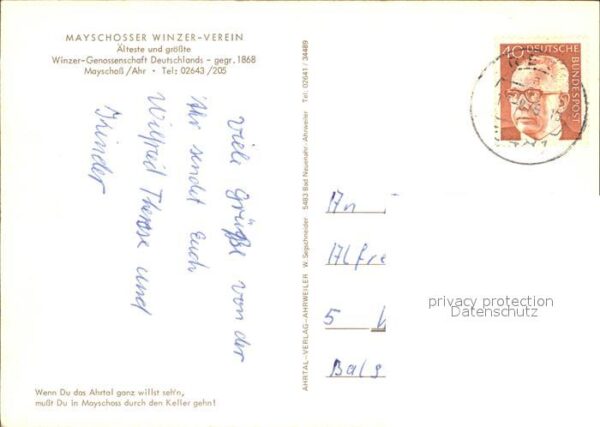 MAYSCHOSSER WINZER-VEREIN
Älteste und größte
Winzer-Genossenschaft Deutschlands - gegr. 1868
Mayschoß/Ahr • Tel: 02643/205
Viele Grüße von der
Ahr sendet Euch
Wilfried Therese und
Kinder
Wenn Du das Ahrtal ganz willst seh'n,
mußt Du in Mayschoss durch den Keller gehn!
AHRTAL-VERLAG-AHRWEILER W. Segschneider 5483 Bad Neuenahr-Ahrweiler Tel. 02641/34489
40 DEUTSCHE
BUNDESPOST
An
Alfre
5
Balg
privacy protection
Datenschutz